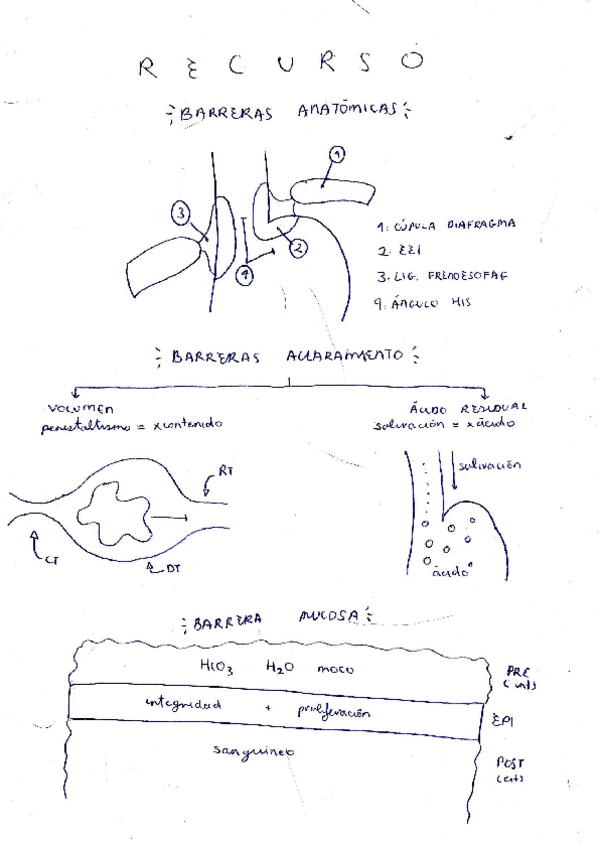 RECURSO
BARRERAS ANATÓMICAS
1
3
2
4
1. CÚPULA DIAFRAGMA
2. EEI
3. LIG. FRENOESOFAG
4. ÁNGULO HIS
BARRERAS ACLARAMIENTO
VOLUMEN
peristaltismo = x contenido
ÁCIDO RESIDUAL
salivación = x ácido
RT
CT
DT
salivación
ácido
BARRERA MUCOSA
HCO3 H2O moco
PRE
integridad + proliferación
EPI
sanguíneo
POST